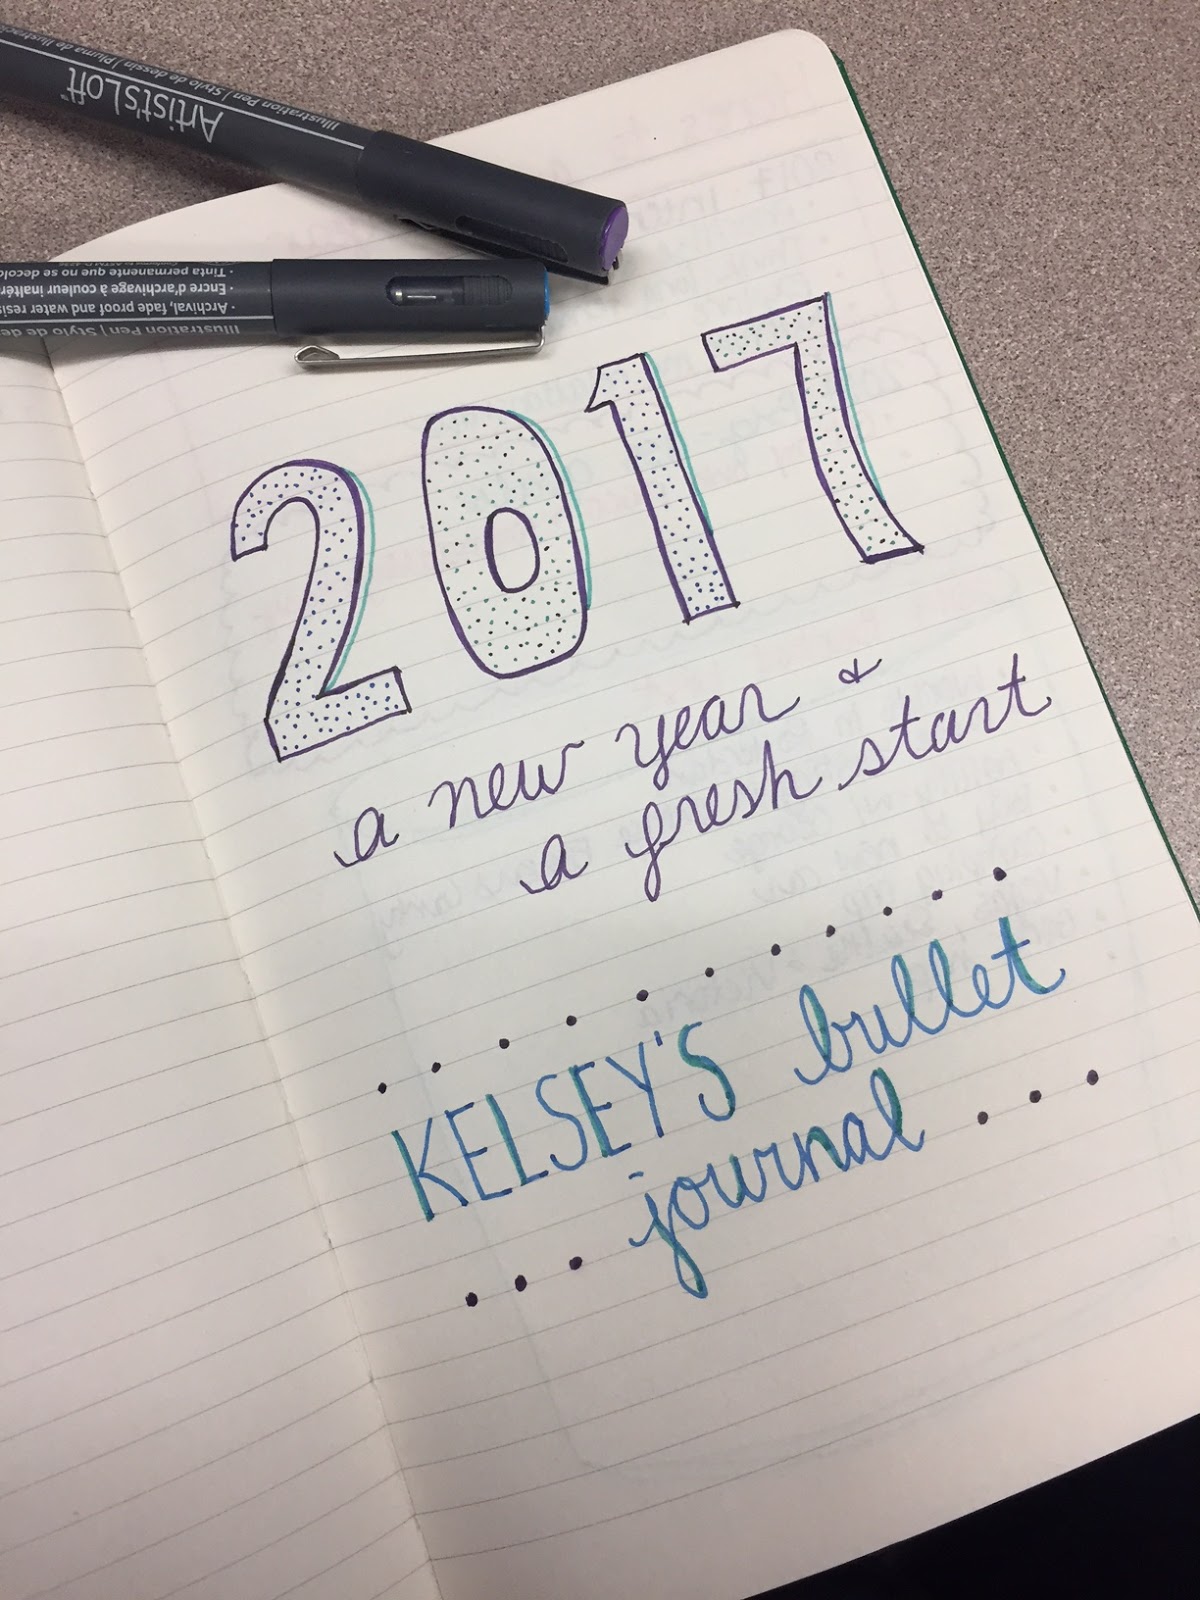 Artist's Loft
Illustration Pen | Stylo de dessin | Pluma de Ilustrac
Illustration Pen | Stylo de de
Archival, fade proof and water resis
Encre d'archivage à couleur inaltér
Tinta permanente que no se decolo
2017
a new year &
a fresh start
KELSEY'S bullet
journal